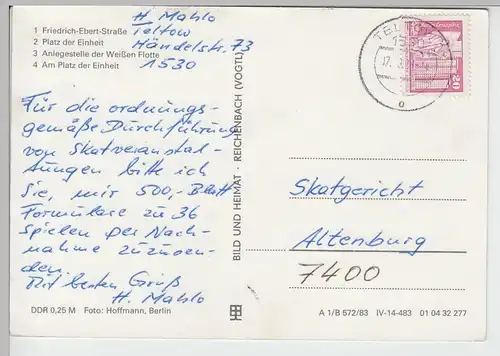 H. Mahlo
Teltow
Händelstr. 73
1530
1 Friedrich-Ebert-Straße
2 Platz der Einheit
3 Anlegestelle der Weißen Flotte
4 Am Platz der Einheit
Für die ordnungs-
gemäße Durchführung
von Skatveranstal-
tungen bitte ich
Sie, mir 500,- Blatt
Formulare zu 36
Spielen per Nach-
nahme zuzusen-
den.
Mit besten Gruß
H. Mahlo
DDR 0,25 M Foto: Hoffmann, Berlin
BILD UND HEIMAT · REICHENBACH (VOGTL)
20
Skatgericht
Altenburg
7400
A 1/B 572/83 IV-14-483 01 04 32 277